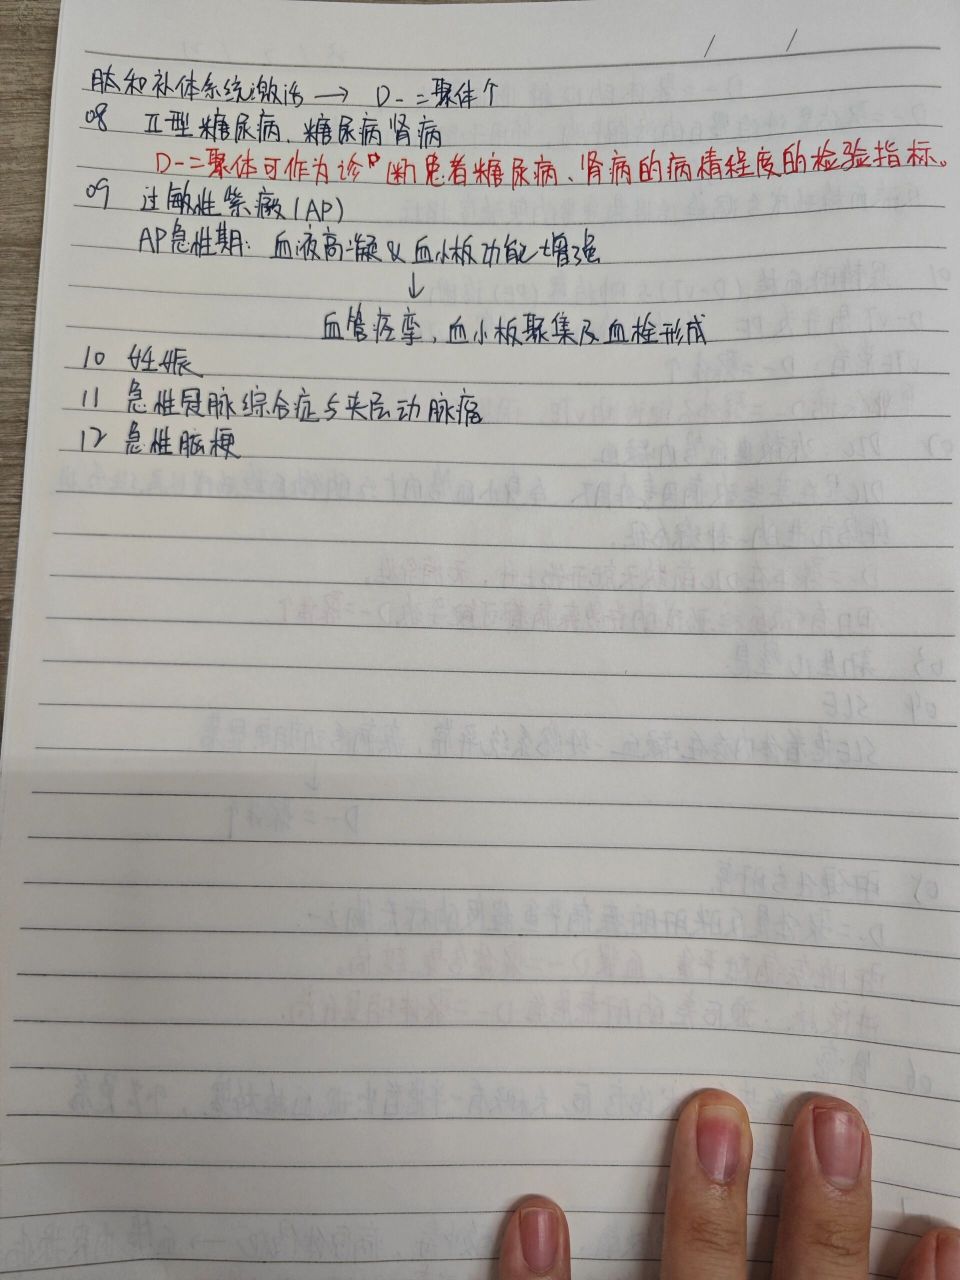 肽和补体系统激活 → D-二聚体↑
08 Ⅱ型糖尿病、糖尿病肾病
D-二聚体可作为诊断患者糖尿病、肾病的病情程度的检验指标。
09 过敏性紫癜(AP)
AP急性期: 血液高凝&血小板功能增强
↓
血管痉挛,血小板聚集及血栓形成
10 妊娠
11 急性冠脉综合症与夹层动脉瘤
12 急性脑梗